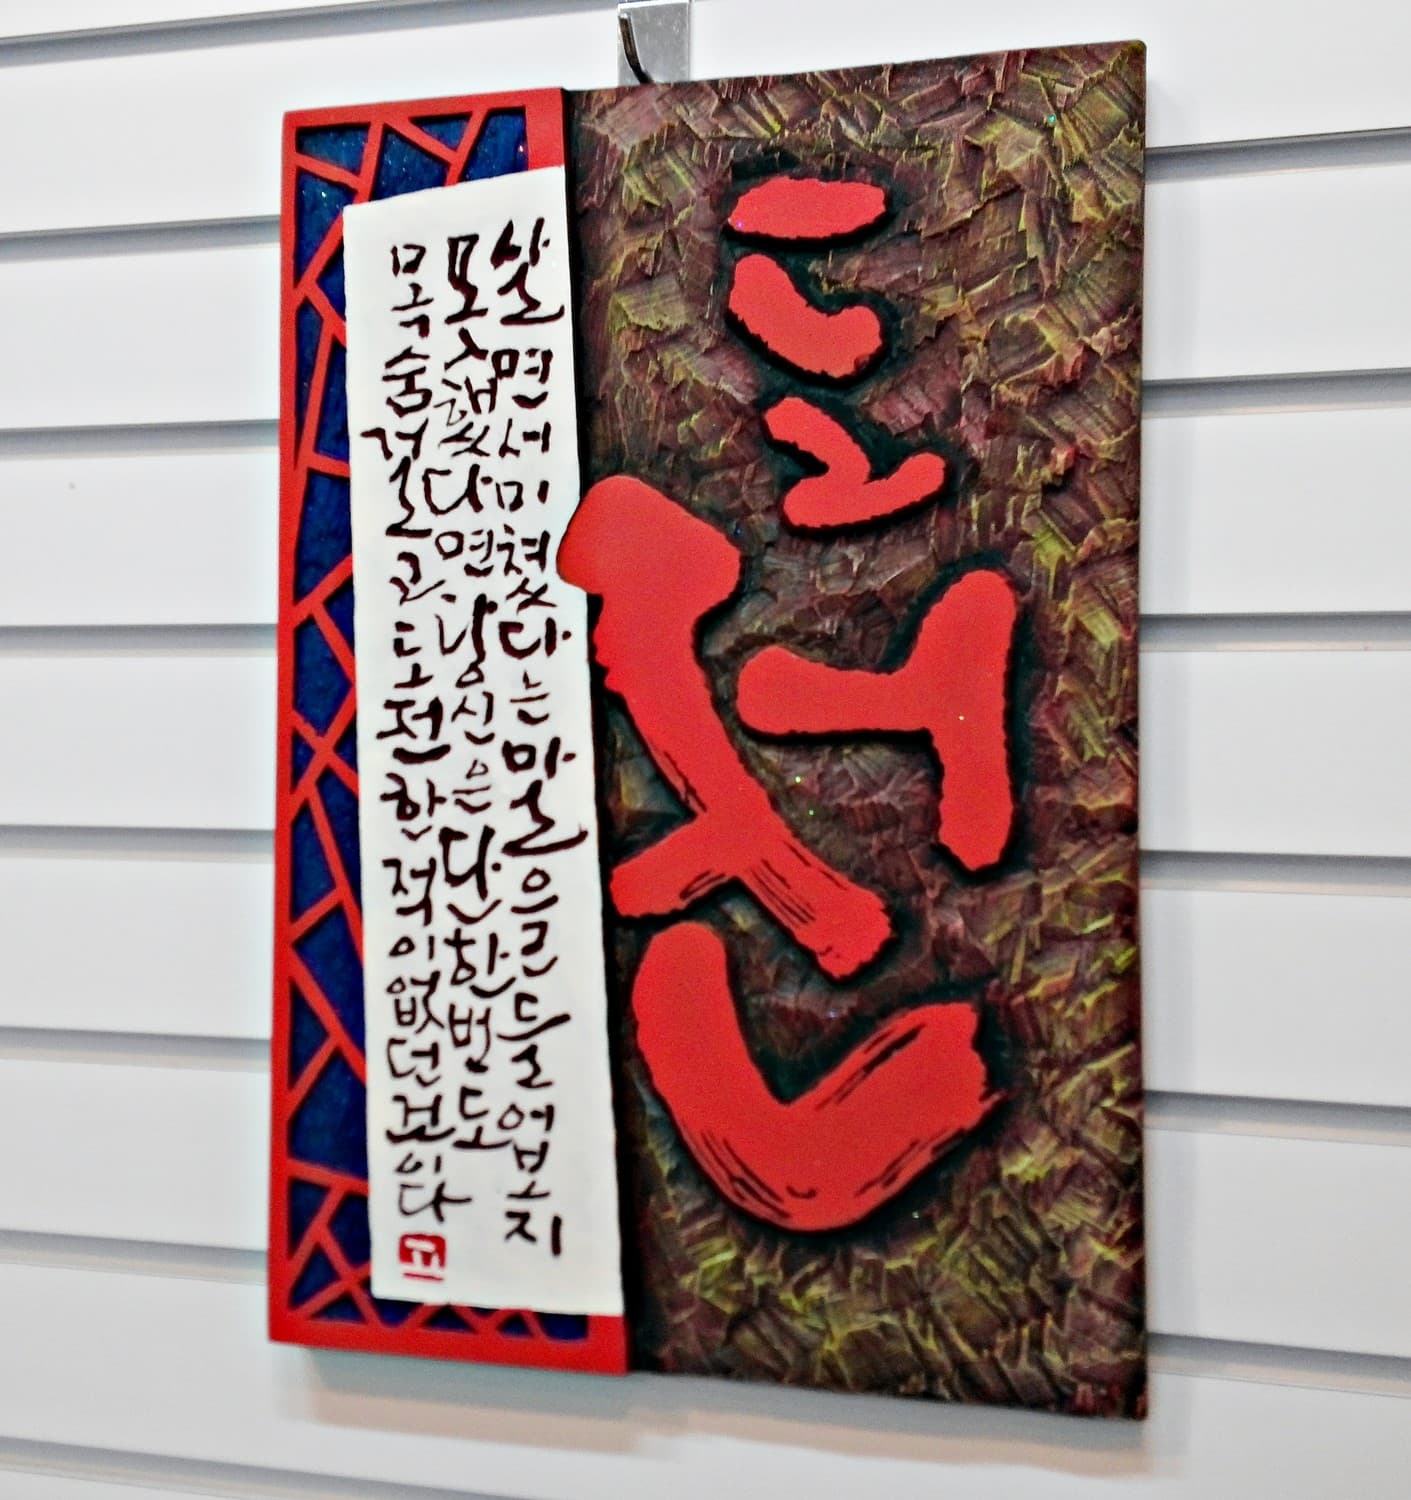 도전
살면서미쳤다는말을들어보지
못했다면, 당신은단한번도
목숨걸고, 도전한적이없던것이다